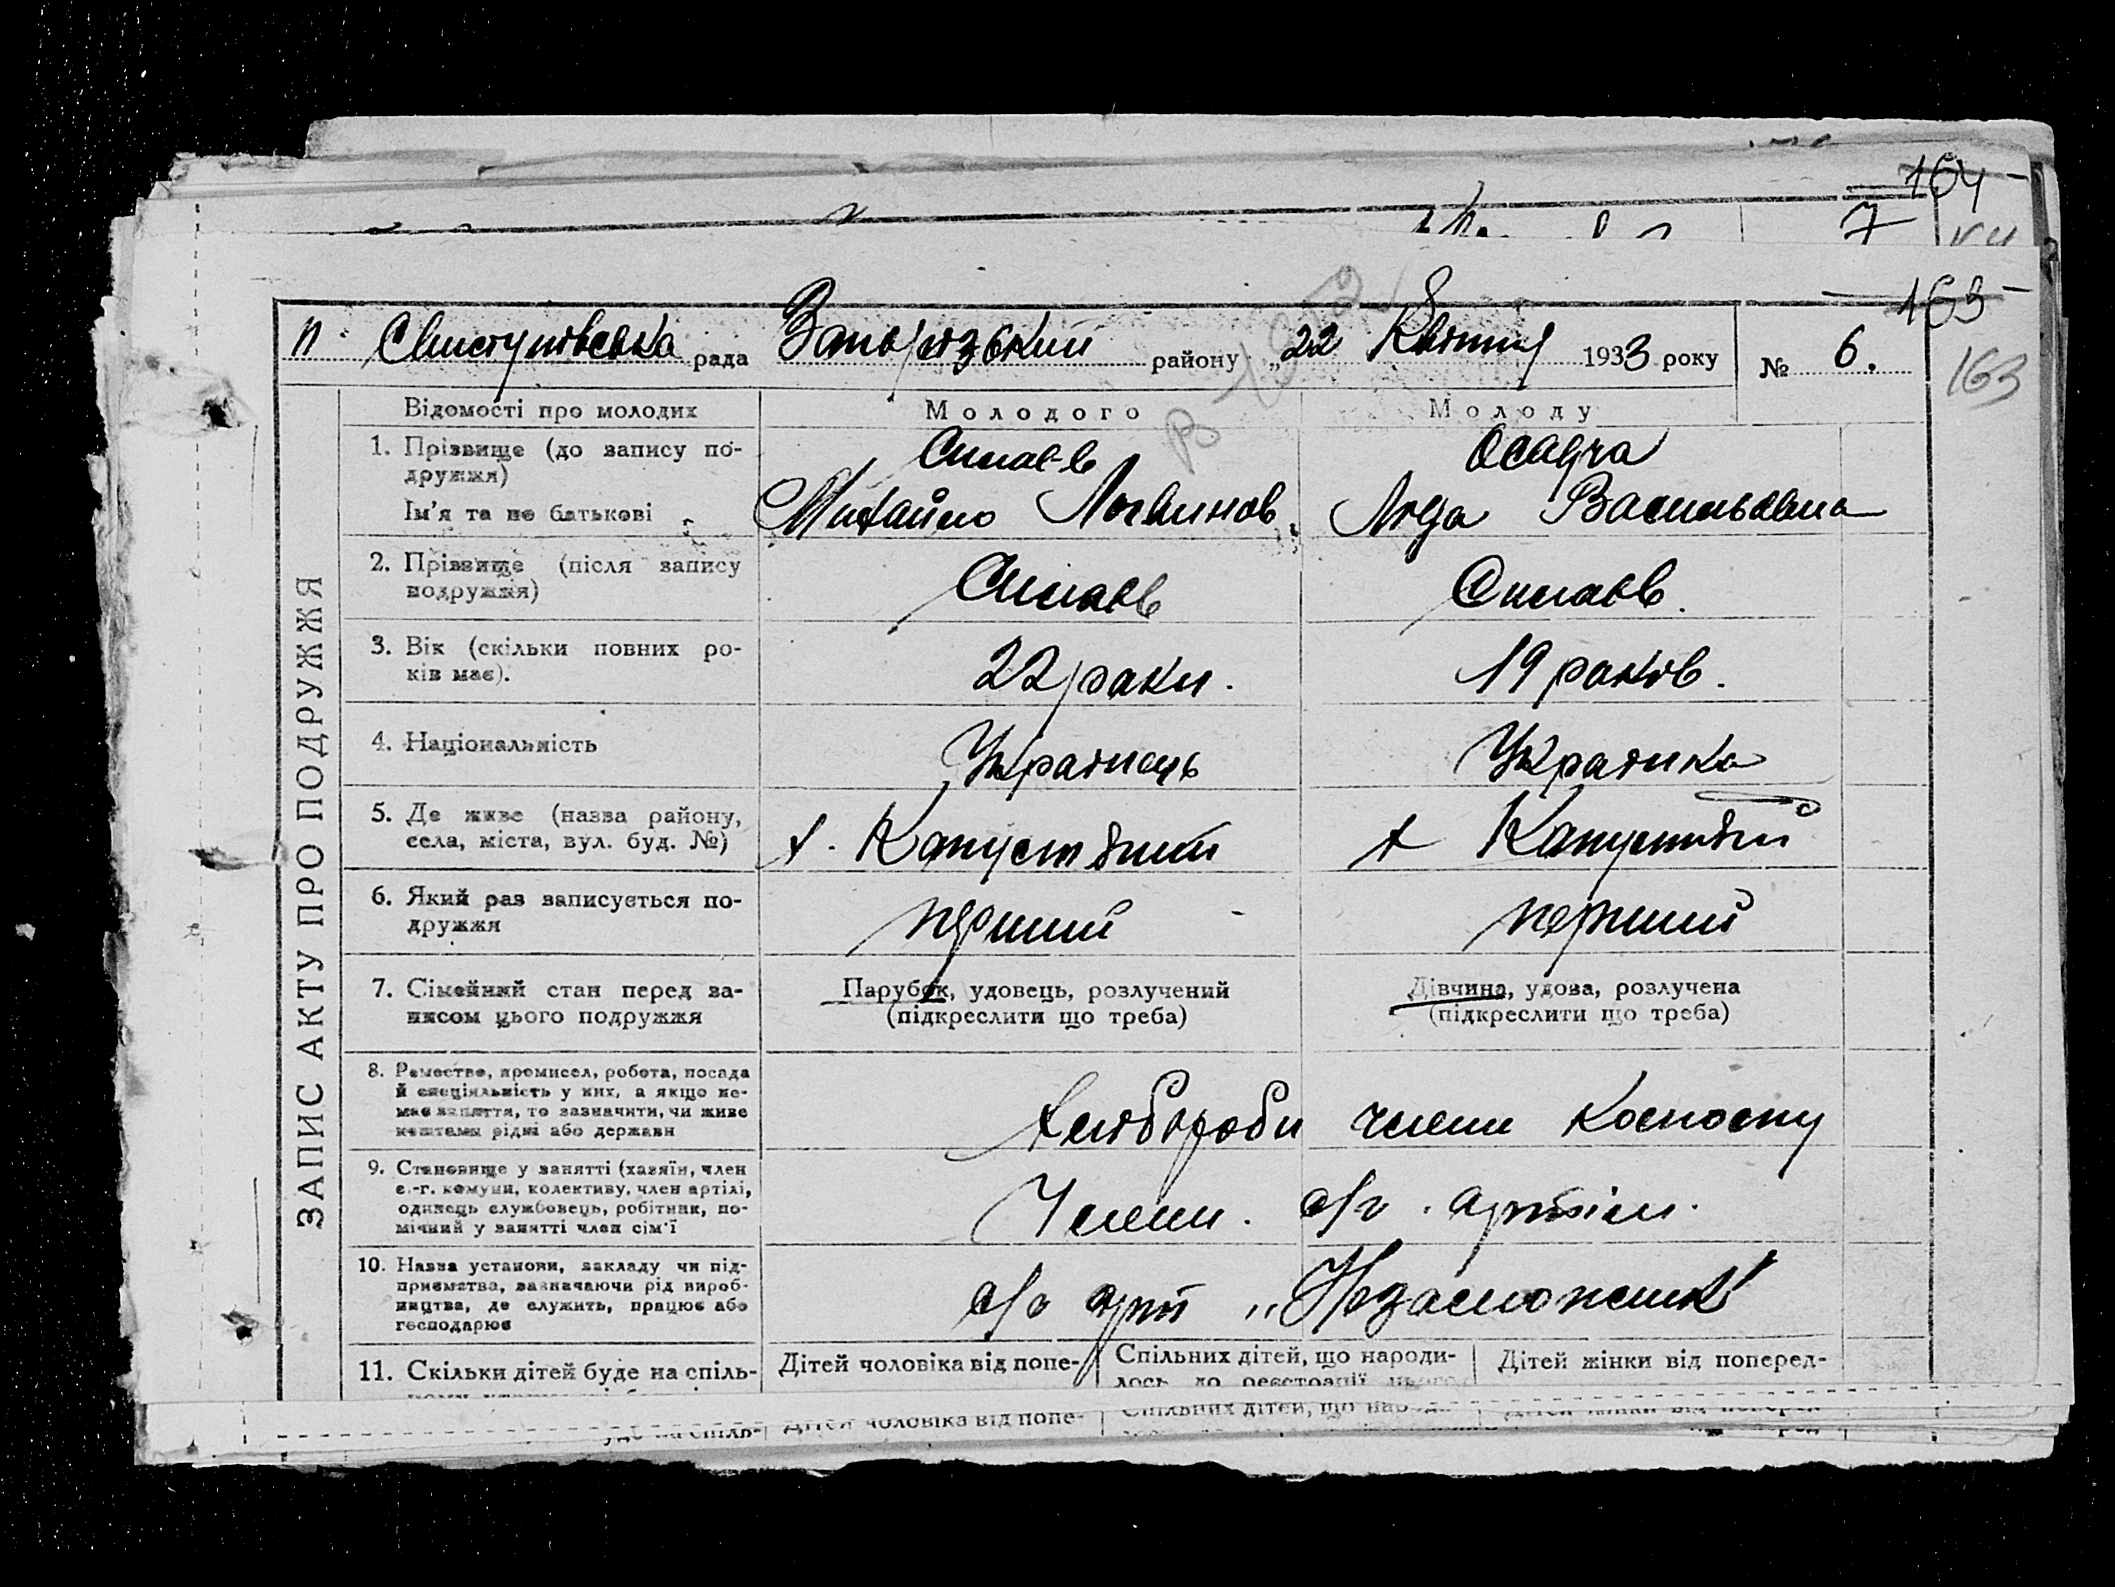 164
7
163
163
Свистунівська рада Запорізький району „22 Квітня 1933 року № 6.
ЗАПИС АКТУ ПРО ПОДРУЖЖЯ
Відомості про молодих Молодого Молоду
1. Прізвище (до запису по-
дружжя)
Силаєв Осадча
Ім'я та по батькові Михайло Логвинов.Ліда Васильовна
2. Прізвище (після запису
подружжя)
Силаєв Силаєв.
3. Вік (скільки повних ро-
ків має).
22 роки. 19 років.
4. Національність Українець Українка
5. Де живе (назва району,
села, міста, вул. буд. №)
х. Капустяний х Капустяний
6. Який раз записується по-
дружжя
перший перший
7. Сімейний стан перед за-
писом цього подружжя
Парубок, удовець, розлучений
(підкреслити що треба)
Дівчина, удова, розлучена
(підкреслити що треба)
8. Ремество, промисел, робота, посада
й спеціяльність у них, а якщо не-
має заняття, то зазначити, чи живе
коштами рідні або держави
Хлібороби члени колгоспу
9. Становище у занятті (хазяїн, член
с.-г. комуни, колективу, член артілі,
одинець службовець, робітник, по-
мічний у занятті член сім'ї
Члени с/г. артіли.
10. Назва установи, закладу чи під-
приємства, зазначаючи рід вироб-
ництва, де служить, працює або
господарює
с/г арт „Незаможник"
11. Скільки дітей буде на спіль-
Дітей чоловіка від попе-
Спільних дітей, що народи-
лось до реєстрації цього
Дітей жінки від поперед-
Дітей чоловіка від попе-
Спільних дітей, що народи-